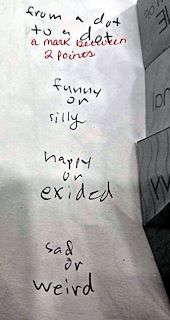 from a dot
to a dot
a mark between
2 points
funny
or
silly
happy
or
exided
sad
or
weird